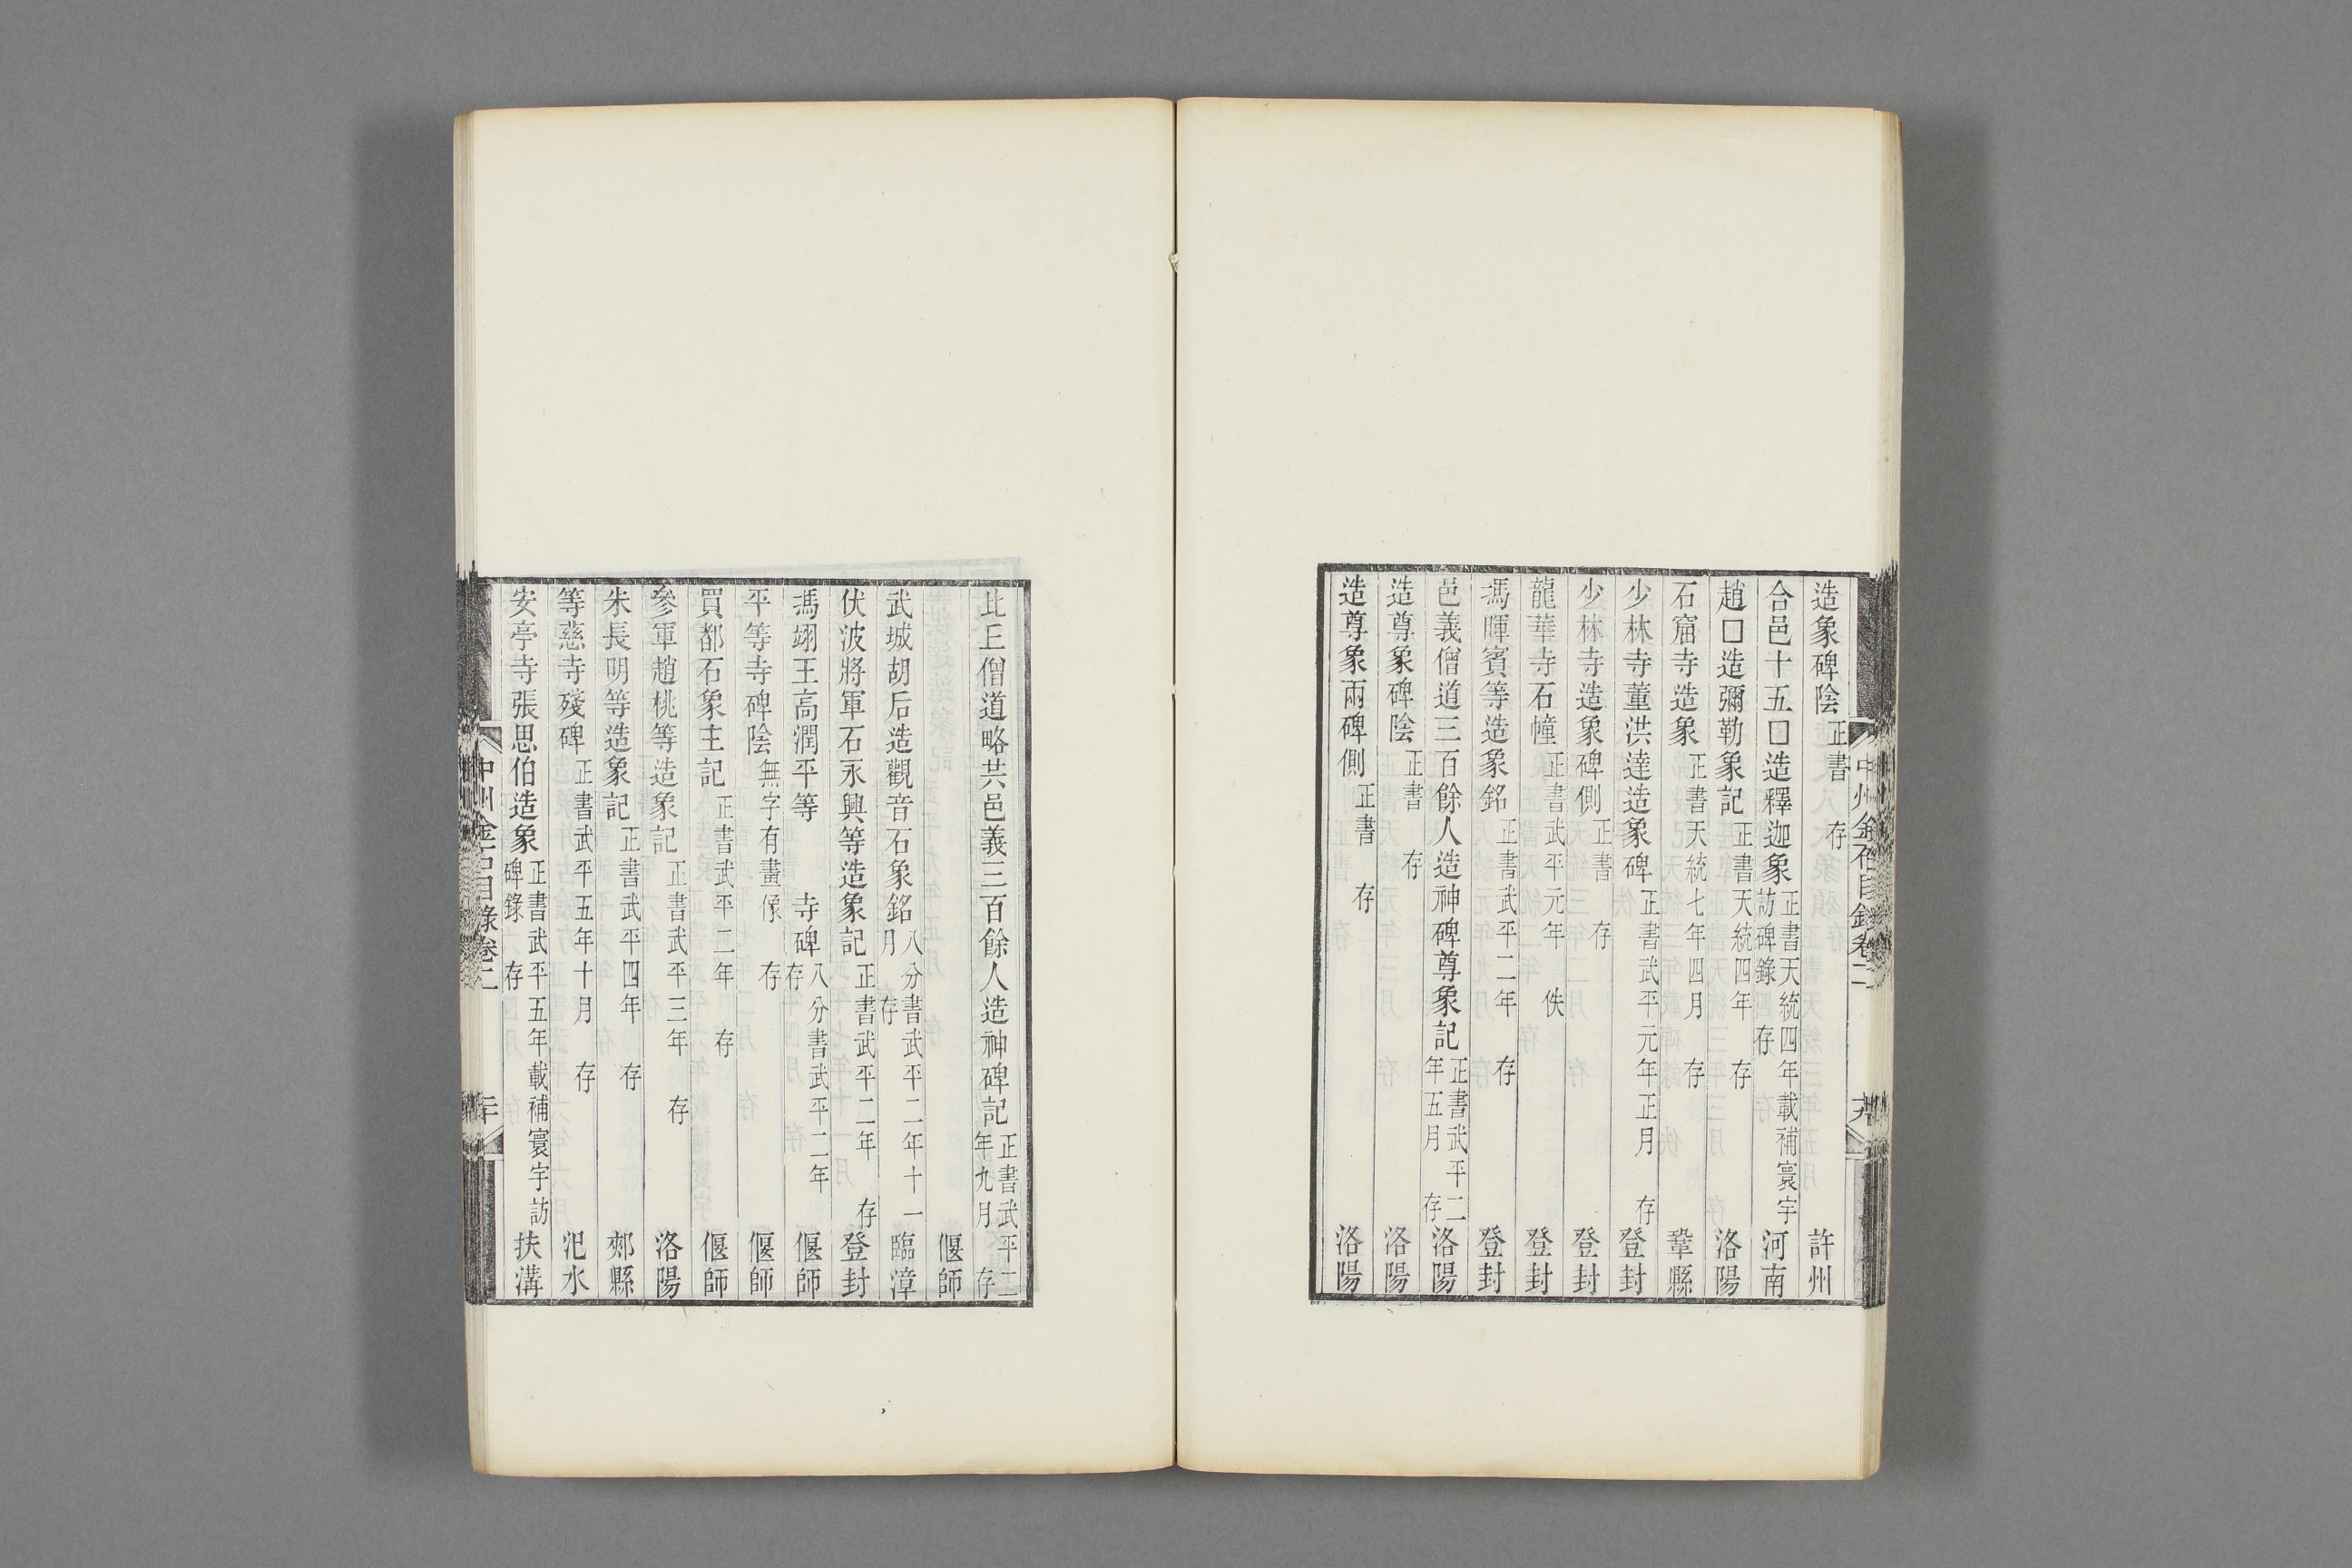 造象碑陰 正書 存 許州
合邑十五口造釋迦象 正書天統四年載補寰宇訪碑錄 存 河南
趙口造彌勒象記 正書天統四年 存 洛陽
石窟寺造象 正書天統七年四月 存 鞏縣
少林寺董洪達造象碑 正書武平元年正月 存 登封
少林寺造象碑側 正書 存 登封
龍華寺石幢 正書武平元年 佚 登封
馮暉賓等造象銘 正書武平二年 存 登封
邑義僧道三百餘人造神碑尊象記 正書武平二年五月 存 洛陽
造尊象碑陰 正書 存 洛陽
造尊象兩碑側 正書 存 洛陽
中州金石目錄卷二
比丘僧道略共邑義三百餘人造神碑記 正書武平二年九月 存
偃師
武城胡后造觀音石象銘 八分書武平二年十一月 存 臨漳
伏波將軍石永興等造象記 正書武平二年 存 登封
馮翊王高潤平等 寺碑 八分書武平二年 存 偃師
平等寺碑陰 無字有畫像 存 偃師
買都石象主記 正書武平二年 存 偃師
參軍趙桃等造象記 正書武平三年 存 洛陽
朱長明等造象記 正書武平四年 存 郟縣
等慈寺殘碑 正書武平五年十月 存 汜水
安亭寺張思伯造象 正書武平五年載補寰宇訪碑錄 存 扶溝
中州金石目錄卷二